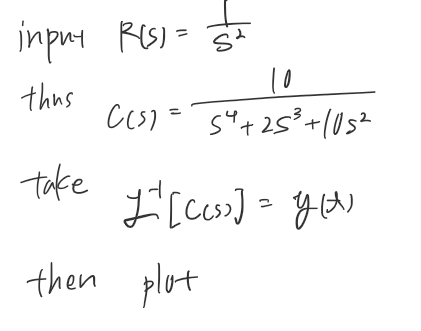 input R(s) = 1/s²
thus C(s) = 10/(s⁴+2s³+10s²)
take ℒ⁻¹[C(s)] = y(t)
then plot